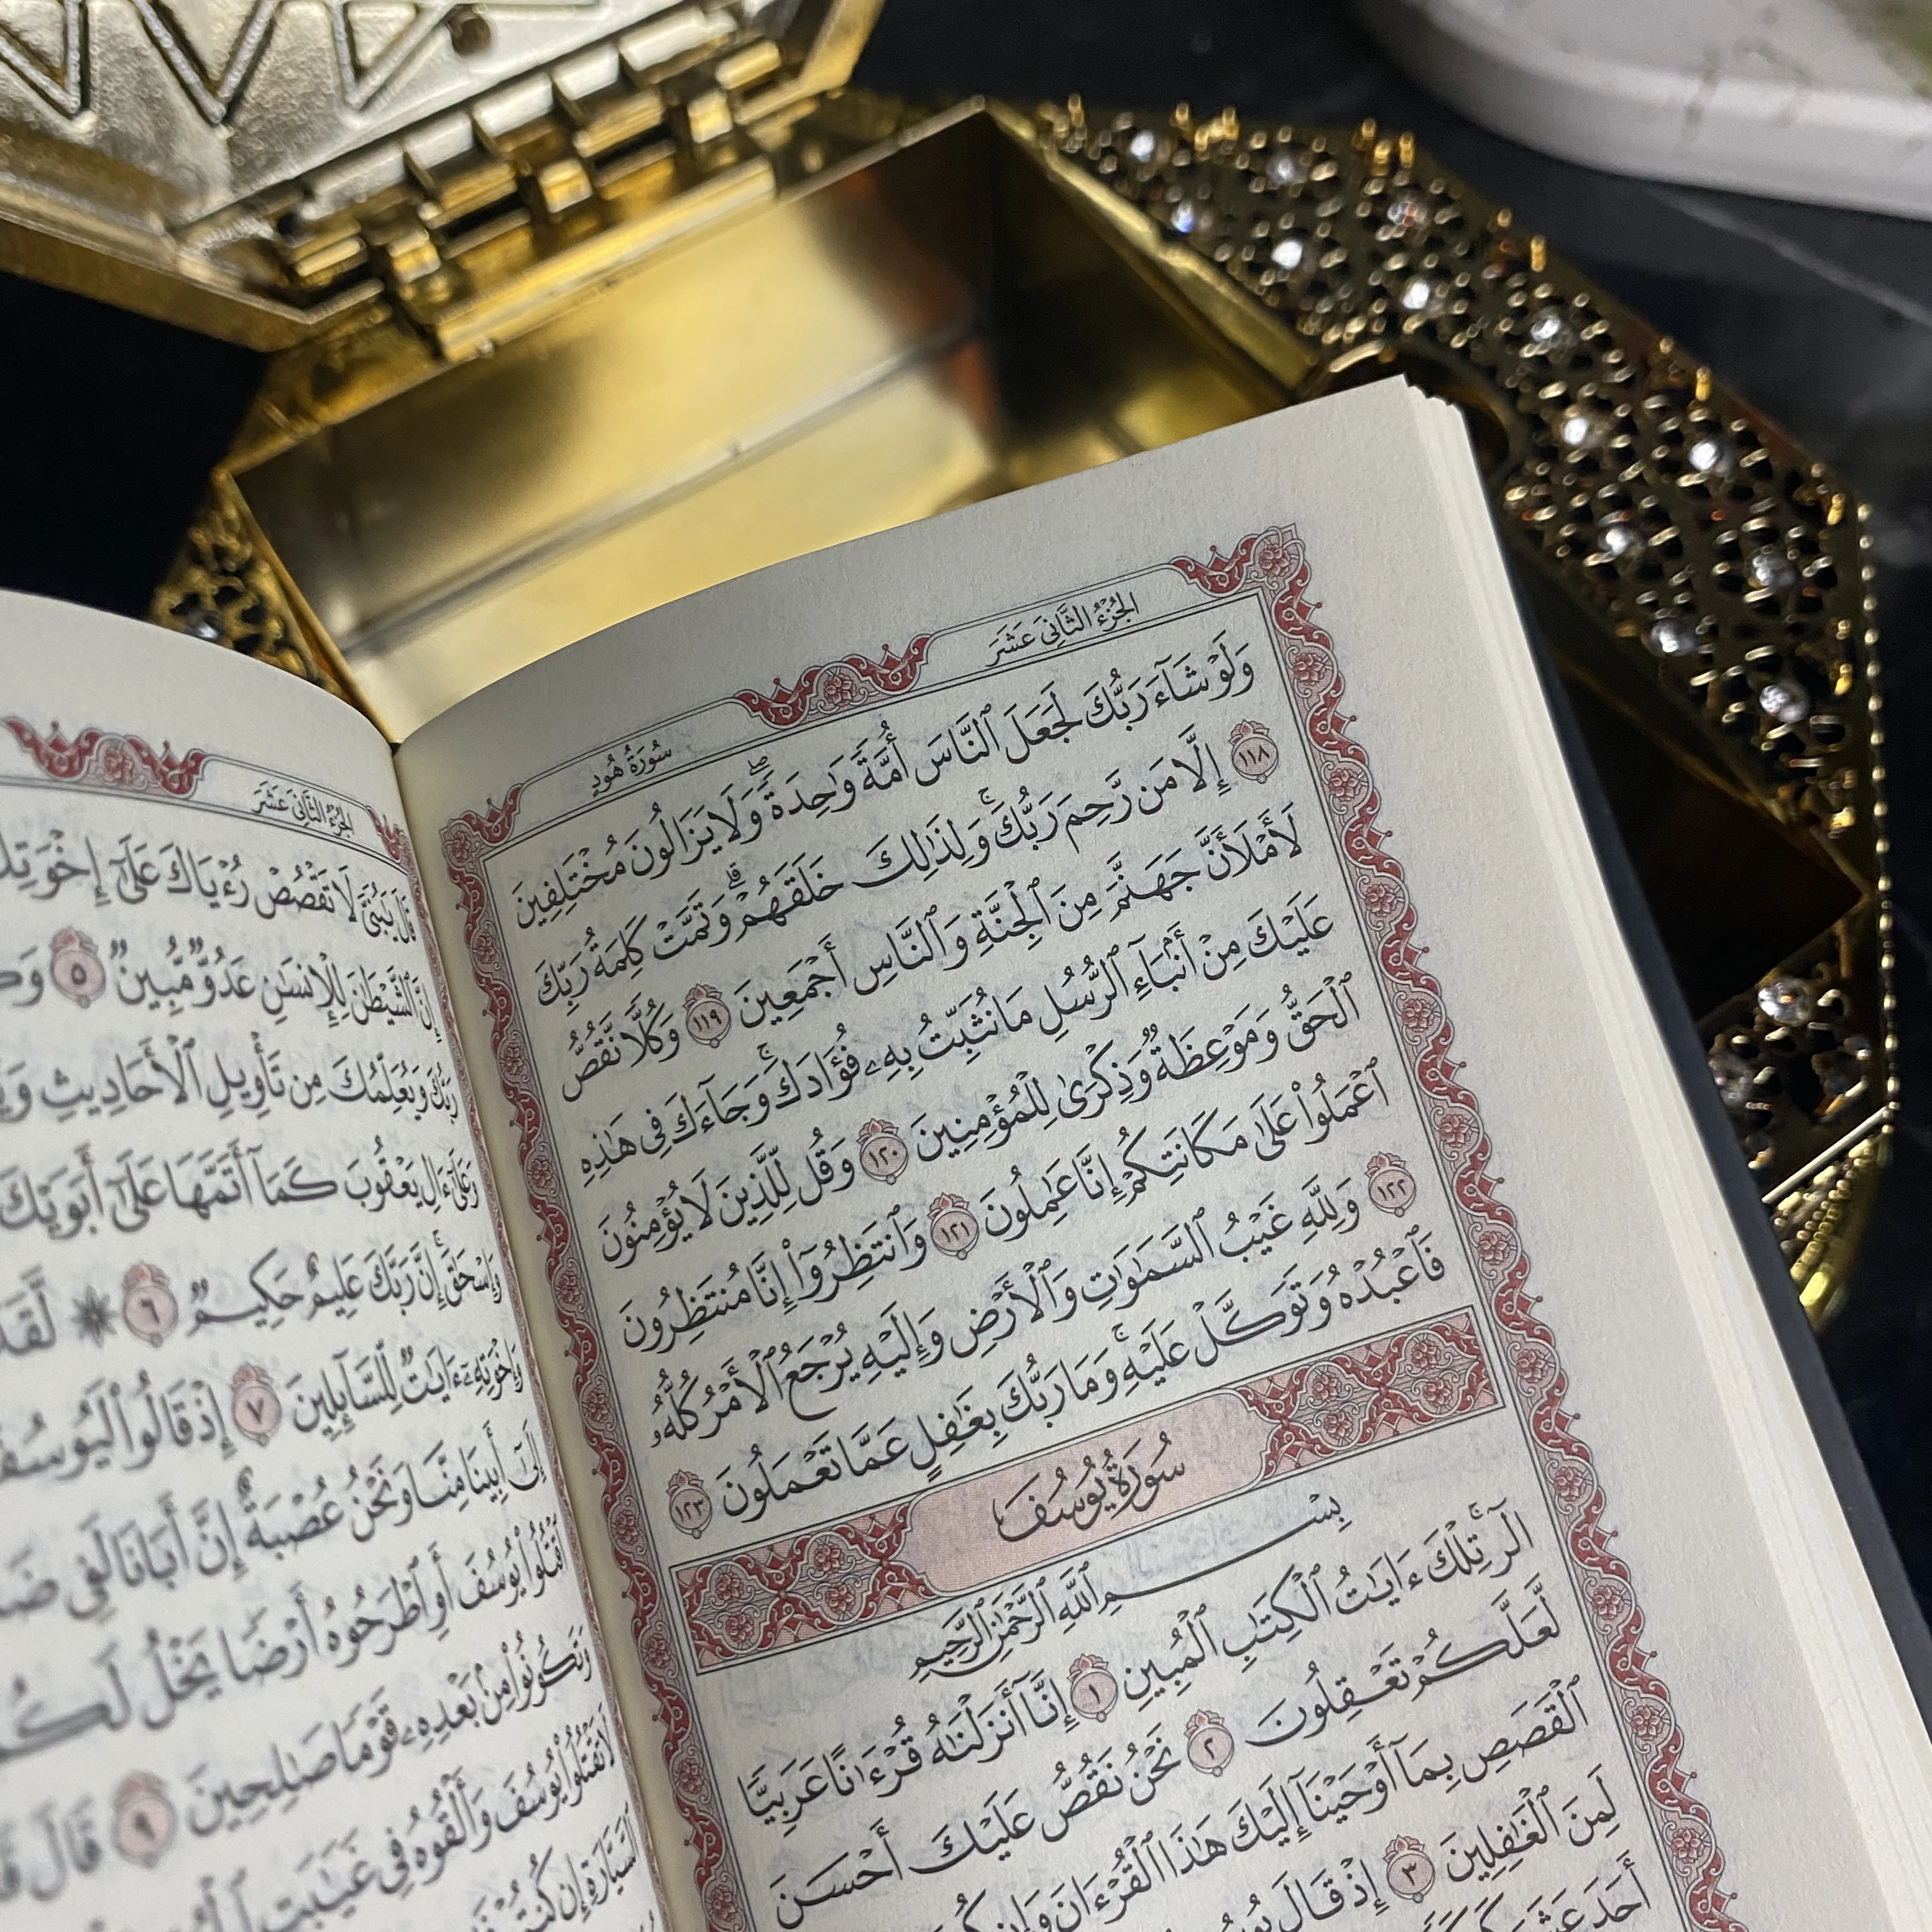 الجُزْءُ الثَّانِيَ عَشَرَ
سُورَةُ هُودٍ
وَلَوْ شَآءَ رَبُّكَ لَجَعَلَ ٱلنَّاسَ أُمَّةً وَٰحِدَةً ۖ وَلَا يَزَالُونَ مُخْتَلِفِينَ
١١٨ إِلَّا مَن رَّحِمَ رَبُّكَ ۚ وَلِذَٰلِكَ خَلَقَهُمْ ۗ وَتَمَّتْ كَلِمَةُ رَبِّكَ
لَأَمْلَأَنَّ جَهَنَّمَ مِنَ ٱلْجِنَّةِ وَٱلنَّاسِ أَجْمَعِينَ ١١٩ وَكُلًّا نَّقُصُّ
عَلَيْكَ مِنْ أَنۢبَآءِ ٱلرُّسُلِ مَا نُثَبِّتُ بِهِۦ فُؤَادَكَ ۚ وَجَآءَكَ فِى هَٰذِهِ
ٱلْحَقُّ وَمَوْعِظَةٌ وَذِكْرَىٰ لِلْمُؤْمِنِينَ ١٢٠ وَقُل لِّلَّذِينَ لَا يُؤْمِنُونَ
ٱعْمَلُوا۟ عَلَىٰ مَكَانَتِكُمْ إِنَّا عَٰمِلُونَ ١٢١ وَٱنتَظِرُوٓا۟ إِنَّا مُنتَظِرُونَ
١٢٢ وَلِلَّهِ غَيْبُ ٱلسَّمَٰوَٰتِ وَٱلْأَرْضِ وَإِلَيْهِ يُرْجَعُ ٱلْأَمْرُ كُلُّهُۥ
فَٱعْبُدْهُ وَتَوَكَّلْ عَلَيْهِ ۚ وَمَا رَبُّكَ بِغَٰفِلٍ عَمَّا تَعْمَلُونَ ١٢٣
سُورَةُ يُوسُفَ
بِسْمِ ٱللَّهِ ٱلرَّحْمَٰنِ ٱلرَّحِيمِ
الٓر ۚ تِلْكَ ءَايَٰتُ ٱلْكِتَٰبِ ٱلْمُبِينِ ١ إِنَّآ أَنزَلْنَٰهُ قُرْءَٰنًا عَرَبِيًّا
لَّعَلَّكُمْ تَعْقِلُونَ ٢ نَحْنُ نَقُصُّ عَلَيْكَ أَحْسَنَ
ٱلْقَصَصِ بِمَآ أَوْحَيْنَآ إِلَيْكَ هَٰذَا ٱلْقُرْءَانَ وَإِن
لَمِنَ ٱلْغَٰفِلِينَ ٣ إِذْ قَالَ
أَحَدَ عَشَرَ
الجُزْءُ الثَّانِيَ عَشَرَ
قَالَ يَٰبُنَىَّ لَا تَقْصُصْ رُءْيَاكَ عَلَىٰٓ
إِنَّ ٱلشَّيْطَٰنَ لِلْإِنسَٰنِ عَدُوٌّ مُّبِينٌ ٥
رَبُّكَ وَيُعَلِّمُكَ مِن تَأْوِيلِ ٱلْأَحَادِيثِ
وَعَلَىٰٓ ءَالِ يَعْقُوبَ كَمَآ أَتَمَّهَا عَلَىٰٓ أَبَوَيْكَ
وَإِسْحَٰقَ ۚ إِنَّ رَبَّكَ عَلِيمٌ حَكِيمٌ ٦ ۞ لَّقَدْ
وَإِخْوَتِهِۦٓ ءَايَٰتٌ لِّلسَّآئِلِينَ ٧ إِذْ قَالُوا۟
إِلَىٰٓ أَبِينَا مِنَّا وَنَحْنُ عُصْبَةٌ إِنَّ أَبَانَا لَفِى
ٱقْتُلُوا۟ يُوسُفَ أَوِ ٱطْرَحُوهُ أَرْضًا يَخْلُ لَكُمْ
وَتَكُونُوا۟ مِنۢ بَعْدِهِۦ قَوْمًا صَٰلِحِينَ ٩ قَالَ
لَا تَقْتُلُوا۟ يُوسُفَ وَأَلْقُوهُ فِى غَيَٰبَتِ
ٱلسَّيَّارَةِ إِن كُنتُمْ